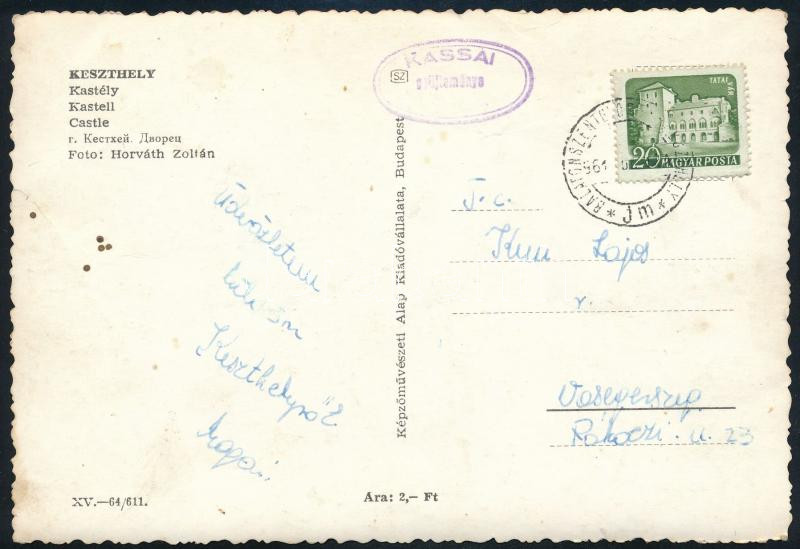 KESZTHELY
Kastély
Kastell
Castle
г. Кестхей. Дворец
Foto: Horváth Zoltán
KASSAI
gyűjteménye
SZ
Képzőművészeti Alap Kiadóvállalata, Budapest
TATAI VÁR
20 MAGYAR POSTA
64
jm
Üdvözletem
Keszthelyről
T. c.
Kun Lajos
r.
Vasegerszeg
Rákóczi. u. 23
XV.—64/611.
Ára: 2,— Ft